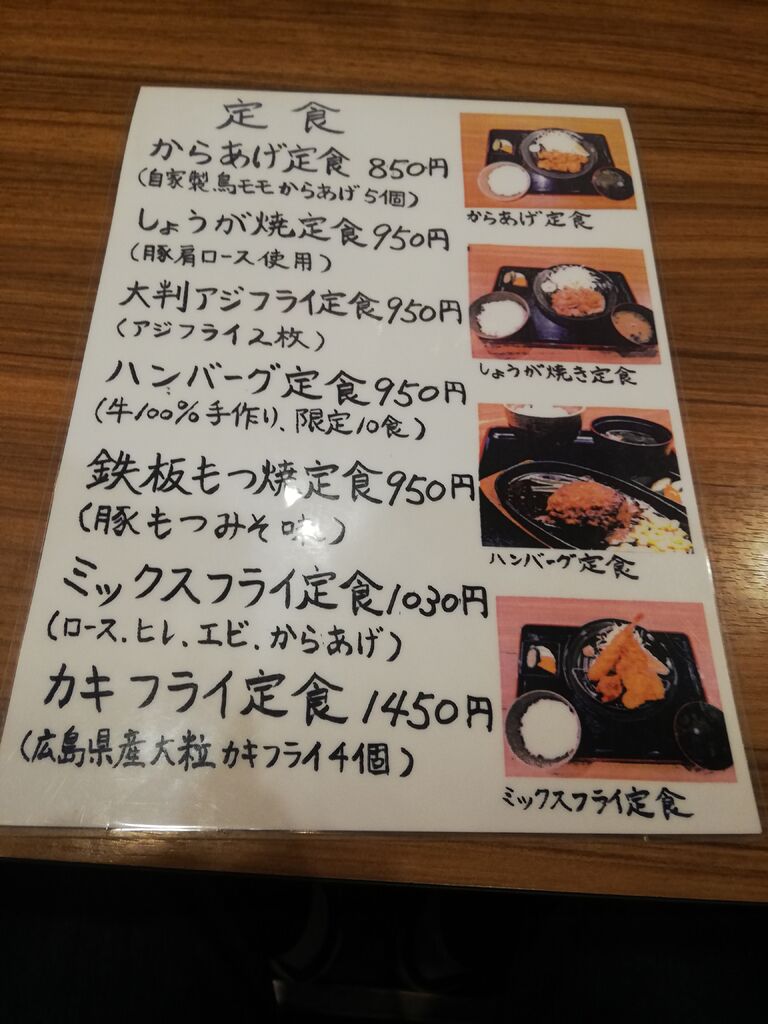 定食
からあげ定食 850円
(自家製鳥モモからあげ5個)
しょうが焼定食950円
(豚肩ロース使用)
大判アジフライ定食950円
(アジフライ2枚)
ハンバーグ定食950円
(牛100%手作り、限定10食)
鉄板もつ焼定食950円
(豚もつみそ味)
ミックスフライ定食1030円
(ロース、ヒレ、エビ、からあげ)
カキフライ定食1450円
(広島県産大粒カキフライ4個)
からあげ定食
しょうが焼き定食
ハンバーグ定食
ミックスフライ定食